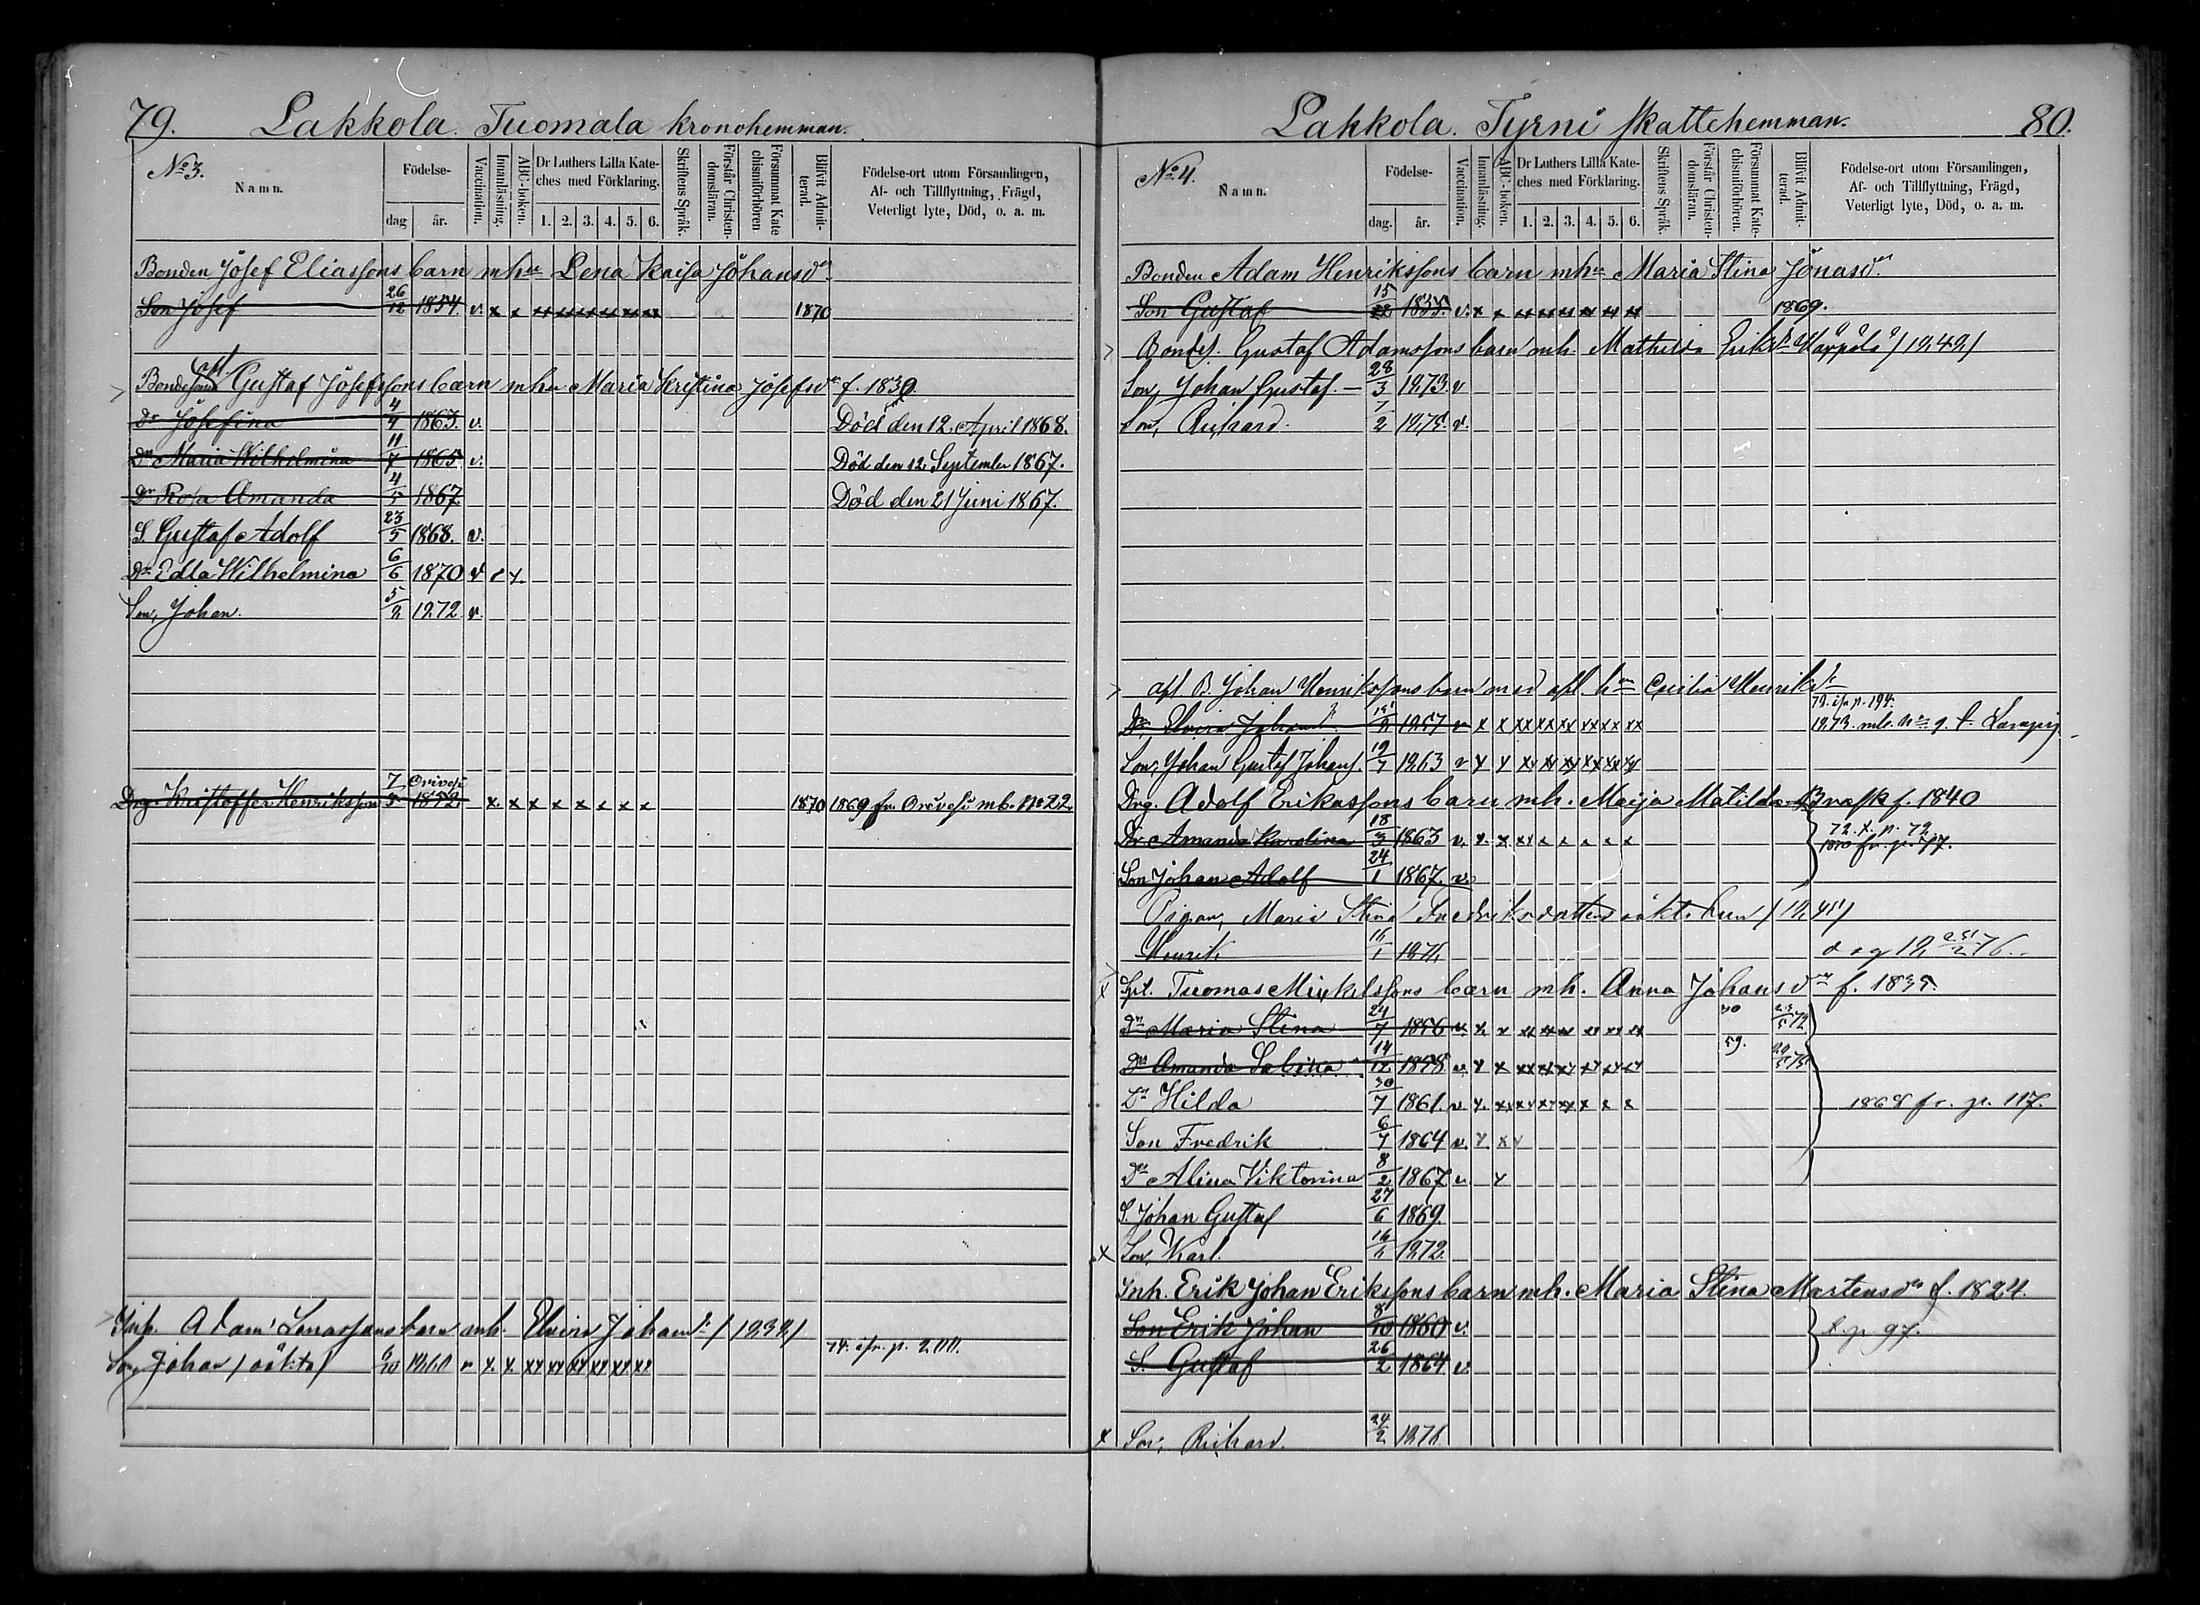 79. Lakkola. Tuomala kronohemman.
No 3.
Namn.
Födelse-
dag
år.
Vaccination.
Innanläsning.
ABC-boken.
Dr Luthers Lilla Kate-
ches med Förklaring.
1. 2. 3. 4. 5. 6.
Skriftens Språk.
Förstår Christen-
domsläran.
Försummat Kate
chismiförhören
Blifvit Admit-
terad.
Födelse-ort utom Församlingen,
Af- och Tillflyttning, Frägd,
Veterligt lyte, Död, o. a. m.
Bonden Josef Eliassons barn mhu Lena Kaisa Johansdr
Son Josef 26/12 1854. v. x x 1870
afl
Bondesons Gustaf Josefssons barn mhu Maria Kristina Josefsdr f. 1839.
Dr Josefina 4/4 1863. v. Död den 12. April 1868.
Dr Maria Wilhelmina 11/7 1865 v. Död den 12. September 1867.
Dr Rosa Amanda 4/5 1867 Död den 21 Juni 1867.
S. Gustaf Adolf 23/5 1868. v.
Dr Edla Wilhelmina 6/6 1870 v
Son, Johan. 5/2 1872. v.
Drg. Kristoffer Henriksson 7/5 Orivesi 1852. x. x x x x x x x 1870 1869 fr. Orivesi mb. No 22.
Inh. Adam barn mh. Elvira Johansdr
Son Johan 1860 v x. x. xx xx xx xx xx xx 74. ifr. p. 200.
Lakkola. Tyrni skattehemman. 80.
No 4.
Namn.
Födelse-
dag.
år.
Vaccination.
Innanläsning.
ABC-boken.
Dr Luthers Lilla Kate-
ches med Förklaring.
1. 2. 3. 4. 5. 6.
Skriftens Språk.
Förstår Christen-
domsläran.
Försummat Kate-
chismiförhören.
Blifvit Admit-
terad.
Födelse-ort utom Församlingen,
Af- och Tillflyttning, Frägd,
Veterligt lyte, Död, o. a. m.
Bonden Adam Henrikssons barn mhu Maria Stina Jonasdr
Son Gustaf 15 1855. v. x x 1869.
Bondes. Gustaf Adamssons barn mh. Mathilda Eriksdr
Son, Johan Gustaf. 28/3 1873. v
Son, Rickard. 7/2 1875. v.
afl. B. Johan Henrikssons barn med afl. hn Cecilia Henriksdr
Dr. Elvira Johansdr 1857 v x x xx xx xx xx xx xx
Son, Johan Gustaf Johans. 1863 v
Drg. Adolf Erikssons barn mh. Maija Matilda Brask f. 1840
Dr Amanda Karolina 18/3 1863 v. x. x xx x x x x x 72. t. p. 72
1870 fr. p. 77.
Son Johan Adolf 24/1 1867. v.
Pigan, Maria Stina Fredriksdotters oäkta barn
Henrik 1876
Spt. Tuomas Mickelssons barn mh. Anna Johansdr f. 1835.
Dr Maria Stina 24/7 1856 v. x. x
Dr Amanda Sabina 14/12 1858 v. x x 59.
Dr Hilda 30/7 1861. v. x. 1868 fr. p. 117.
Son Fredrik 6/7 1864 v.
Dr Alina Viktorina 8/2 1867 v.
S. Johan Gustaf 27/6 1869
Son, Karl. 1872.
Inh. Erik Johan Erikssons barn mh. Maria Stina Martensdr f. 1824.
Son Erik Johan 8/10 1860 v. t. p 97.
S. Gustaf 26/2 1864 v.
Son, Richard. 24/2 1876